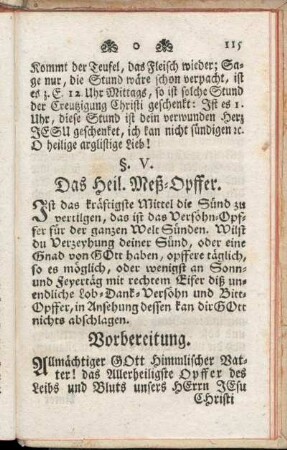 o 115
Kommt der Teufel, das Fleisch wieder; Sa-
ge nur, die Stund wäre schon verpacht, ist
es z. E. 12 Uhr Mittags, so ist solche Stund
der Creutzigung Christi geschenkt: Ist es 1.
Uhr, diese Stund ist dein verwunden Herz
JESU geschenket, ich kan nicht sündigen ꝛc.
O heilige arglistige Lieb!
§. V.
Das Heil. Meß-Opffer.
Ist das kräftigste Mittel die Sünd zu
vertilgen, das ist das Versöhn-Opf-
fer für der ganzen Welt Sünden. Wilst
du Verzeyhung deiner Sünd, oder eine
Gnad von GOtt haben, opffere täglich,
so es möglich, oder wenigst an Sonn-
und Feyertäg mit rechtem Eifer diß un-
endliche Lob-Dank-Versöhn und Bitt-
Opffer, in Ansehung dessen kan dir GOtt
nichts abschlagen.
Vorbereitung.
Allmächtiger GOtt Himmlischer Vat-
ter! das Allerheiligste Opffer des
Leibs und Bluts unsers HErrn JEsu
CHristi